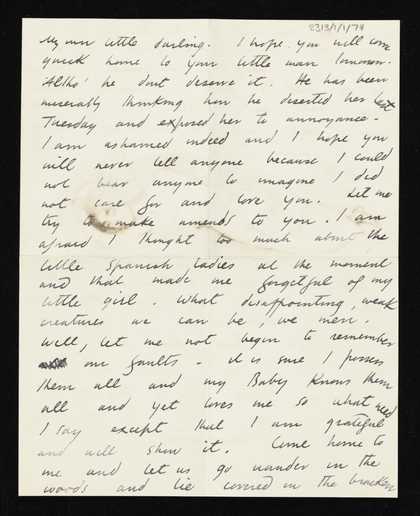 2313/1/1/79
My own little darling. I hope you will come
quick home to your little man tomorrow.
'Altho' he dont deserve it. He has been
miserably thinking how he deserted her last
Tuesday and exposed her to annoyance.
I am ashamed indeed and I hope you
will never tell anyone because I could
not bear anyone to imagine I did
not care for and love you. Let me
try to make amends to you. I am
afraid I thought too much about the
little Spanish ladies at the moment
and that made me forgetful of my
little girl. What disappointing, weak
creatures we can be, we men.
Well, let me not begin to remember
our faults - it is sure I possess
them all and my Baby knows them
all and yet loves me so what need
I say except that I am grateful
and will show it. Come home to
me and let us go wander in the
woods and lie covered in the bracken